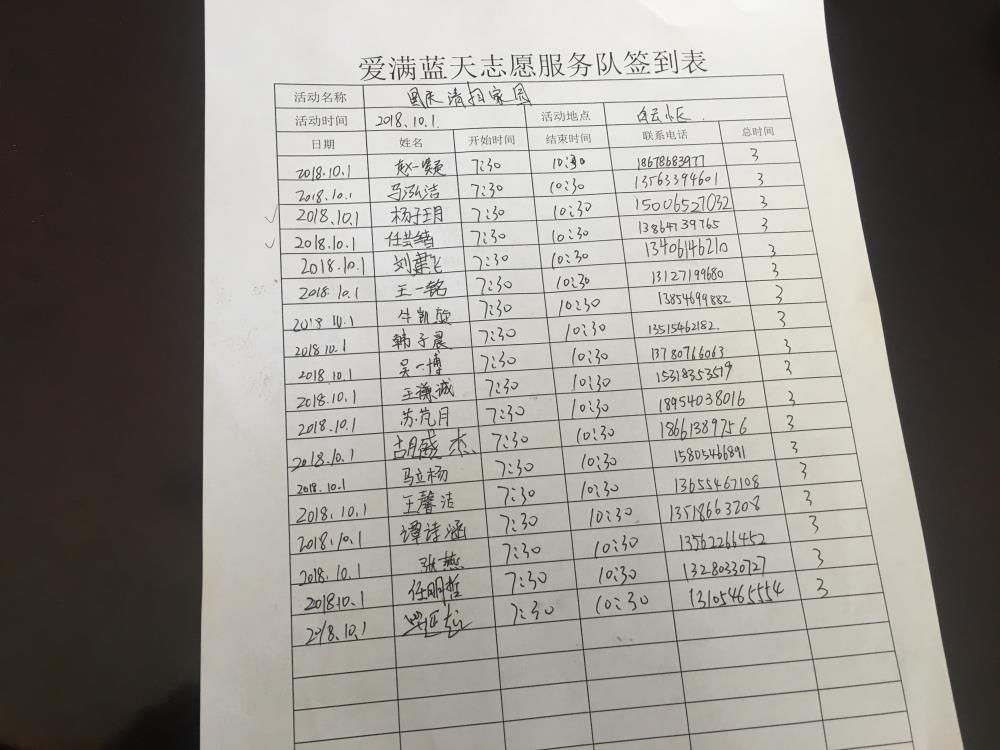 爱满蓝天志愿服务队签到表
活动名称 国庆清扫家园
活动时间 2018.10.1. 活动地点
日期 姓名 开始时间 结束时间 联系电话 总时间
2018.10.1 赵一凝 7:30 10:30 18678683977 3
2018.10.1 马泓洁 7:30 10:30 13563394601 3
2018.10.1 杨子玥 7:30 10:30 15006527032 3
2018.10.1 任芸绪 7:30 10:30 13864739765 3
2018.10.1 刘飞 7:30 10:30 13406146210 3
2018.10.1 王一铭 7:30 10:30 13127199680 3
2018.10.1 牛凯 7:30 10:30 13854699882 3
2018.10.1 韩子晨 7:30 10:30 13515462182. 3
2018.10.1 吴一博 7:30 10:30 13780766063 3
2018.10.1 王谦诚 7:30 10:30 15318353579 3
2018.10.1 苏岚月 7:30 10:30 18954038016 3
2018.10.1 胡盛杰 7:30 10:30 18661389756 3
2018.10.1 马立杨 7:30 10:30 15805466891 3
2018.10.1 王馨洁 7:30 10:30 13655467108 3
2018.10.1 谭诗涵 7:30 10:30 13518663208 3
2018.10.1 张燕 7:30 10:30 13562266452 3
2018.10.1 任明哲 7:30 10:30 13280330727 3
2018.10.1 7:30 10:30 13105465554 3